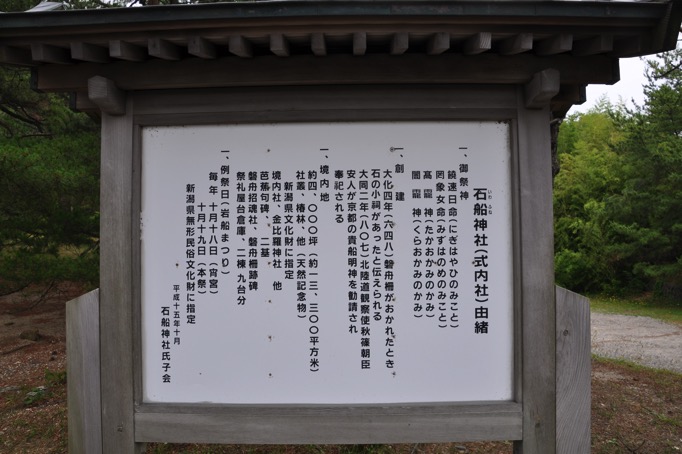 石船神社(式内社)由緒
いわふね
一、御祭神
饒速日命(にぎはやひのみこと)
罔象女命(みずはのめのみこと)
高龗神(たかおかみのかみ)
闇龗神(くらおかみのかみ)
一、創建
大化四年(六四八)磐舟柵がおかれたとき
石の小祠があったと伝えられる
大同二年(八〇七)北陸道観察使秋篠朝臣
安人が京都の貴船明神を勧請され
奉祀される
一、境内地
約四、〇〇〇坪(約一三、三〇〇平方米)
社叢、椿林、他(天然記念物)
新潟県文化財に指定
境内社、金比羅神社 他
芭蕉句碑、二基
磐舟招魂社、磐舟柵跡碑
祭礼屋台倉庫、二棟九台分
一、例祭日(岩船まつり)
毎年 十月十八日(宵宮)
十月十九日(本祭)
新潟県無形民俗文化財に指定
平成十五年十月
石船神社氏子会